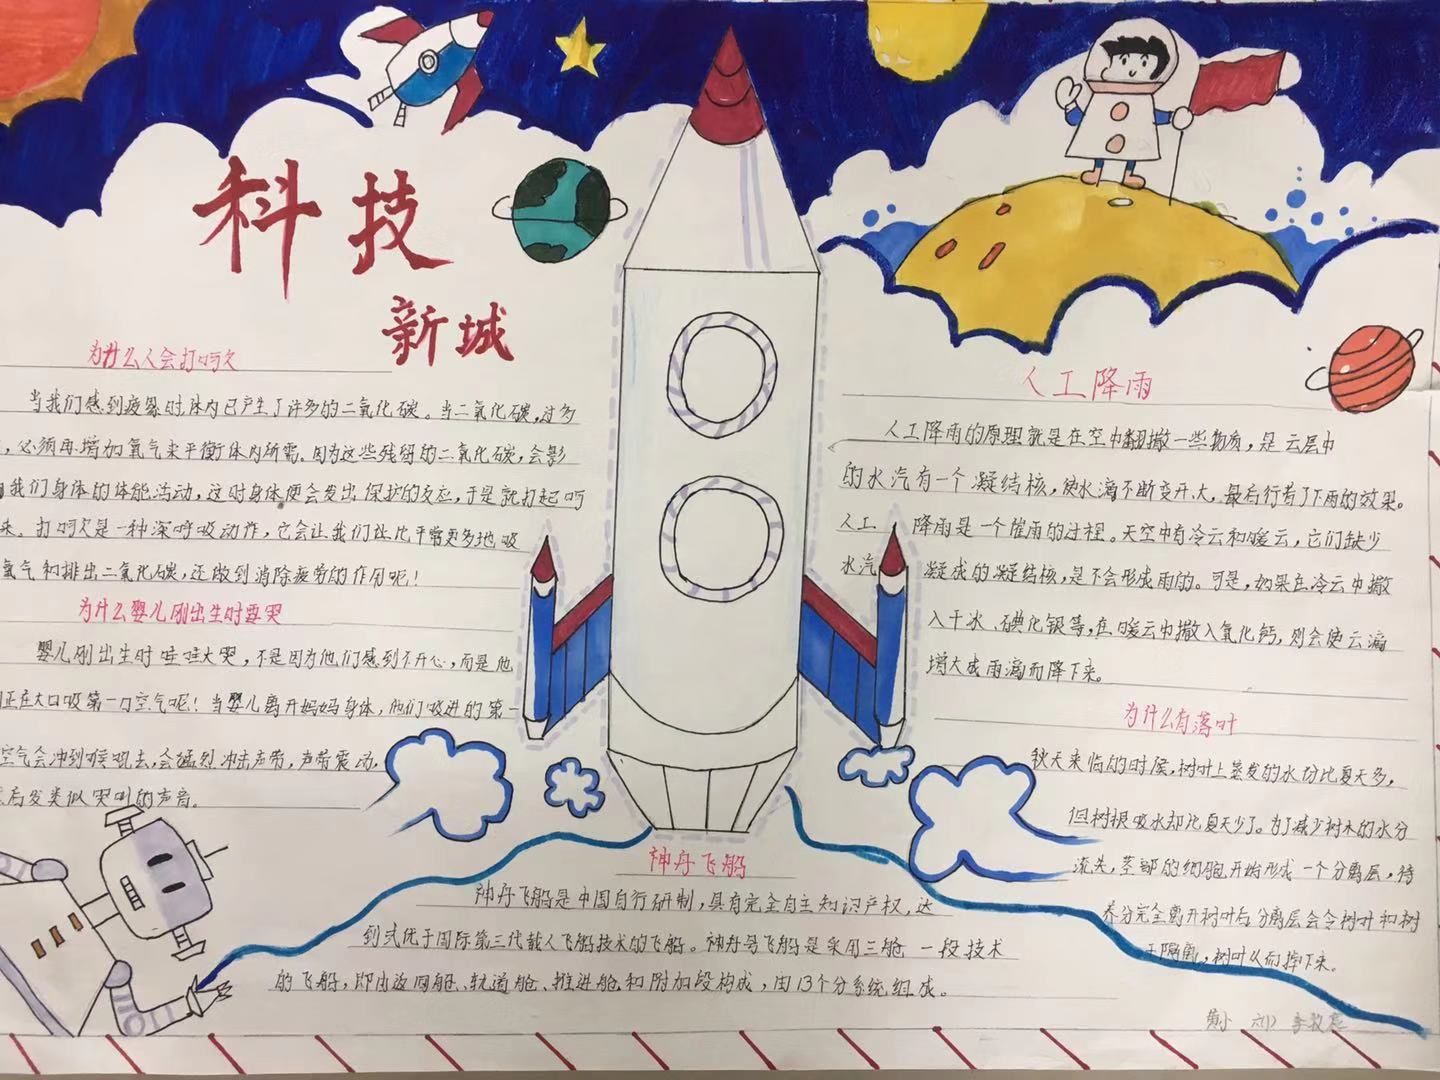 科技
新城
为什么人会打呵欠
当我们感到疲惫时体内已产生了许多的二氧化碳。当二氧化碳,过多
,必须再增加氧气来平衡体内所需。因为这些残留的二氧化碳,会影
我们身体的体能活动,这时身体便会发出保护的反应,于是就打起呵
来。打呵欠是一种深呼吸动作,它会让我们比平常更多地吸
氧气和排出二氧化碳,还做到消除疲劳的作用呢!
为什么婴儿刚出生时要哭
婴儿刚出生时哇哇大哭,不是因为他们感到不开心,而是他
正在大口吸第一口空气呢!当婴儿离开妈妈身体,他们吸进的第一
空气会冲到喉咙去,会猛烈冲击声带,声带震动,
后发类似哭叫的声音。
人工降雨
人工降雨的原理就是在空中翻撒一些物质,是云层中
的水汽有一个凝结核,使水滴不断变大,最后行者了下雨的效果。
人工降雨是一个催雨的过程。天空中有冷云和暖云,它们缺少
水汽凝成的凝结核,是不会形成雨的。可是,如果在冷云中撒
入干冰、碘化银等,在暖云中撒入氧化钙,则会使云滴
增大成雨滴而降下来。
为什么有落叶
秋天来临的时候,树叶上蒸发的水份比夏天多,
但树根吸水却比夏天少了。为了减少树木的水分
流失,茎部的细胞开始形成一个分离层,待
养分完全离开树叶后分离层会令树叶和树
干隔离,树叶从而掉下来。
神舟飞船
神舟飞船是中国自行研制,具有完全自主知识产权,达
到或优于国际第三代载人飞船技术的飞船。神舟号飞船是采用三舱一段技术
的飞船,即由返回舱、轨道舱、推进舱和附加段构成,由13个分系统组成。